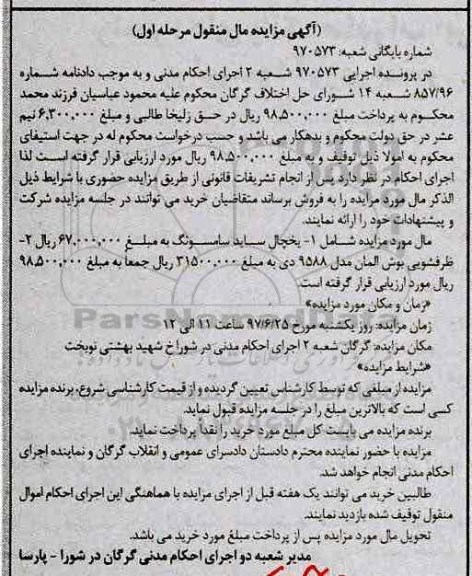 (آگهی مزایده مال منقول مرحله اول)
شماره بایگانی شعبه: ۹۷۰۵۷۳
در پرونده اجرایی ۹۷۰۵۷۳ شعبه ۲ اجرای احکام مدنی و به موجب دادنامه شماره
۸۵۷/۹۶ شعبه ۱۴ شورای حل اختلاف گرگان محکوم علیه محمود عباسیان فرزند محمد
محکوم به پرداخت مبلغ ۹۸,۵۰۰,۰۰۰ ریال در حق زلیخا طالبی و مبلغ ۶,۳۰۰,۰۰۰ نیم
عشر در حق دولت محکوم و بدهکار می باشد و حسب درخواست محکوم له در جهت استیفای
محکوم به امولا ذیل توقیف و به مبلغ ۹۸,۵۰۰,۰۰۰ ریال مورد ارزیابی قرار گرفته است لذا
اجرای احکام در نظر دارد پس از انجام تشریفات قانونی از طریق مزایده حضوری با شرایط ذیل
الذکر مال مورد مزایده را به فروش برساند متقاضیان خرید می توانند در جلسه مزایده شرکت
و پیشنهادات خود را ارائه نمایند.
مال مورد مزایده شامل ۱- یخچال ساید سامسونگ به مبلغ ۶۷,۰۰۰,۰۰۰ ریال ۲-
ظرفشویی بوش المان مدل ۹۵۸۸ دی به مبلغ ۳۱۵۰۰,۰۰۰ ریال جمعا به مبلغ ۹۸,۵۰۰,۰۰۰
ریال مورد ارزیابی قرار گرفته است.
«زمان و مکان مورد مزایده»
زمان مزایده: روز یکشنبه مورخ ۹۷/۶/۲۵ ساعت ۱۱ الی ۱۲
مکان مزایده: گرگان شعبه ۲ اجرای احکام مدنی در شوراخ شهید بهشتی نوبخت
«شرایط مزایده»
مزایده از مبلغی که توسط کارشناس تعیین گردیده و از قیمت کارشناسی شروع، برنده مزایده
کسی است که بالاترین مبلغ را در جلسه مزایده قبول نماید.
برنده مزایده می بایست کل مبلغ مورد خرید را نقدا پرداخت نماید.
مزایده با حضور نماینده محترم دادستان دادسرای عمومی و انقلاب گرگان و نماینده اجرای
احکام مدنی انجام خواهد شد.
طالبین خرید می توانند یک هفته قبل از اجرای مزایده با هماهنگی این اجرای احکام اموال
منقول توقیف شده بازدید نمایند.
تحویل مال مورد مزایده پس از پرداخت مبلغ مورد خرید می باشد.
مدیر شعبه دو اجرای احکام مدنی گرگان در شورا - پارسا
ParsNamadData